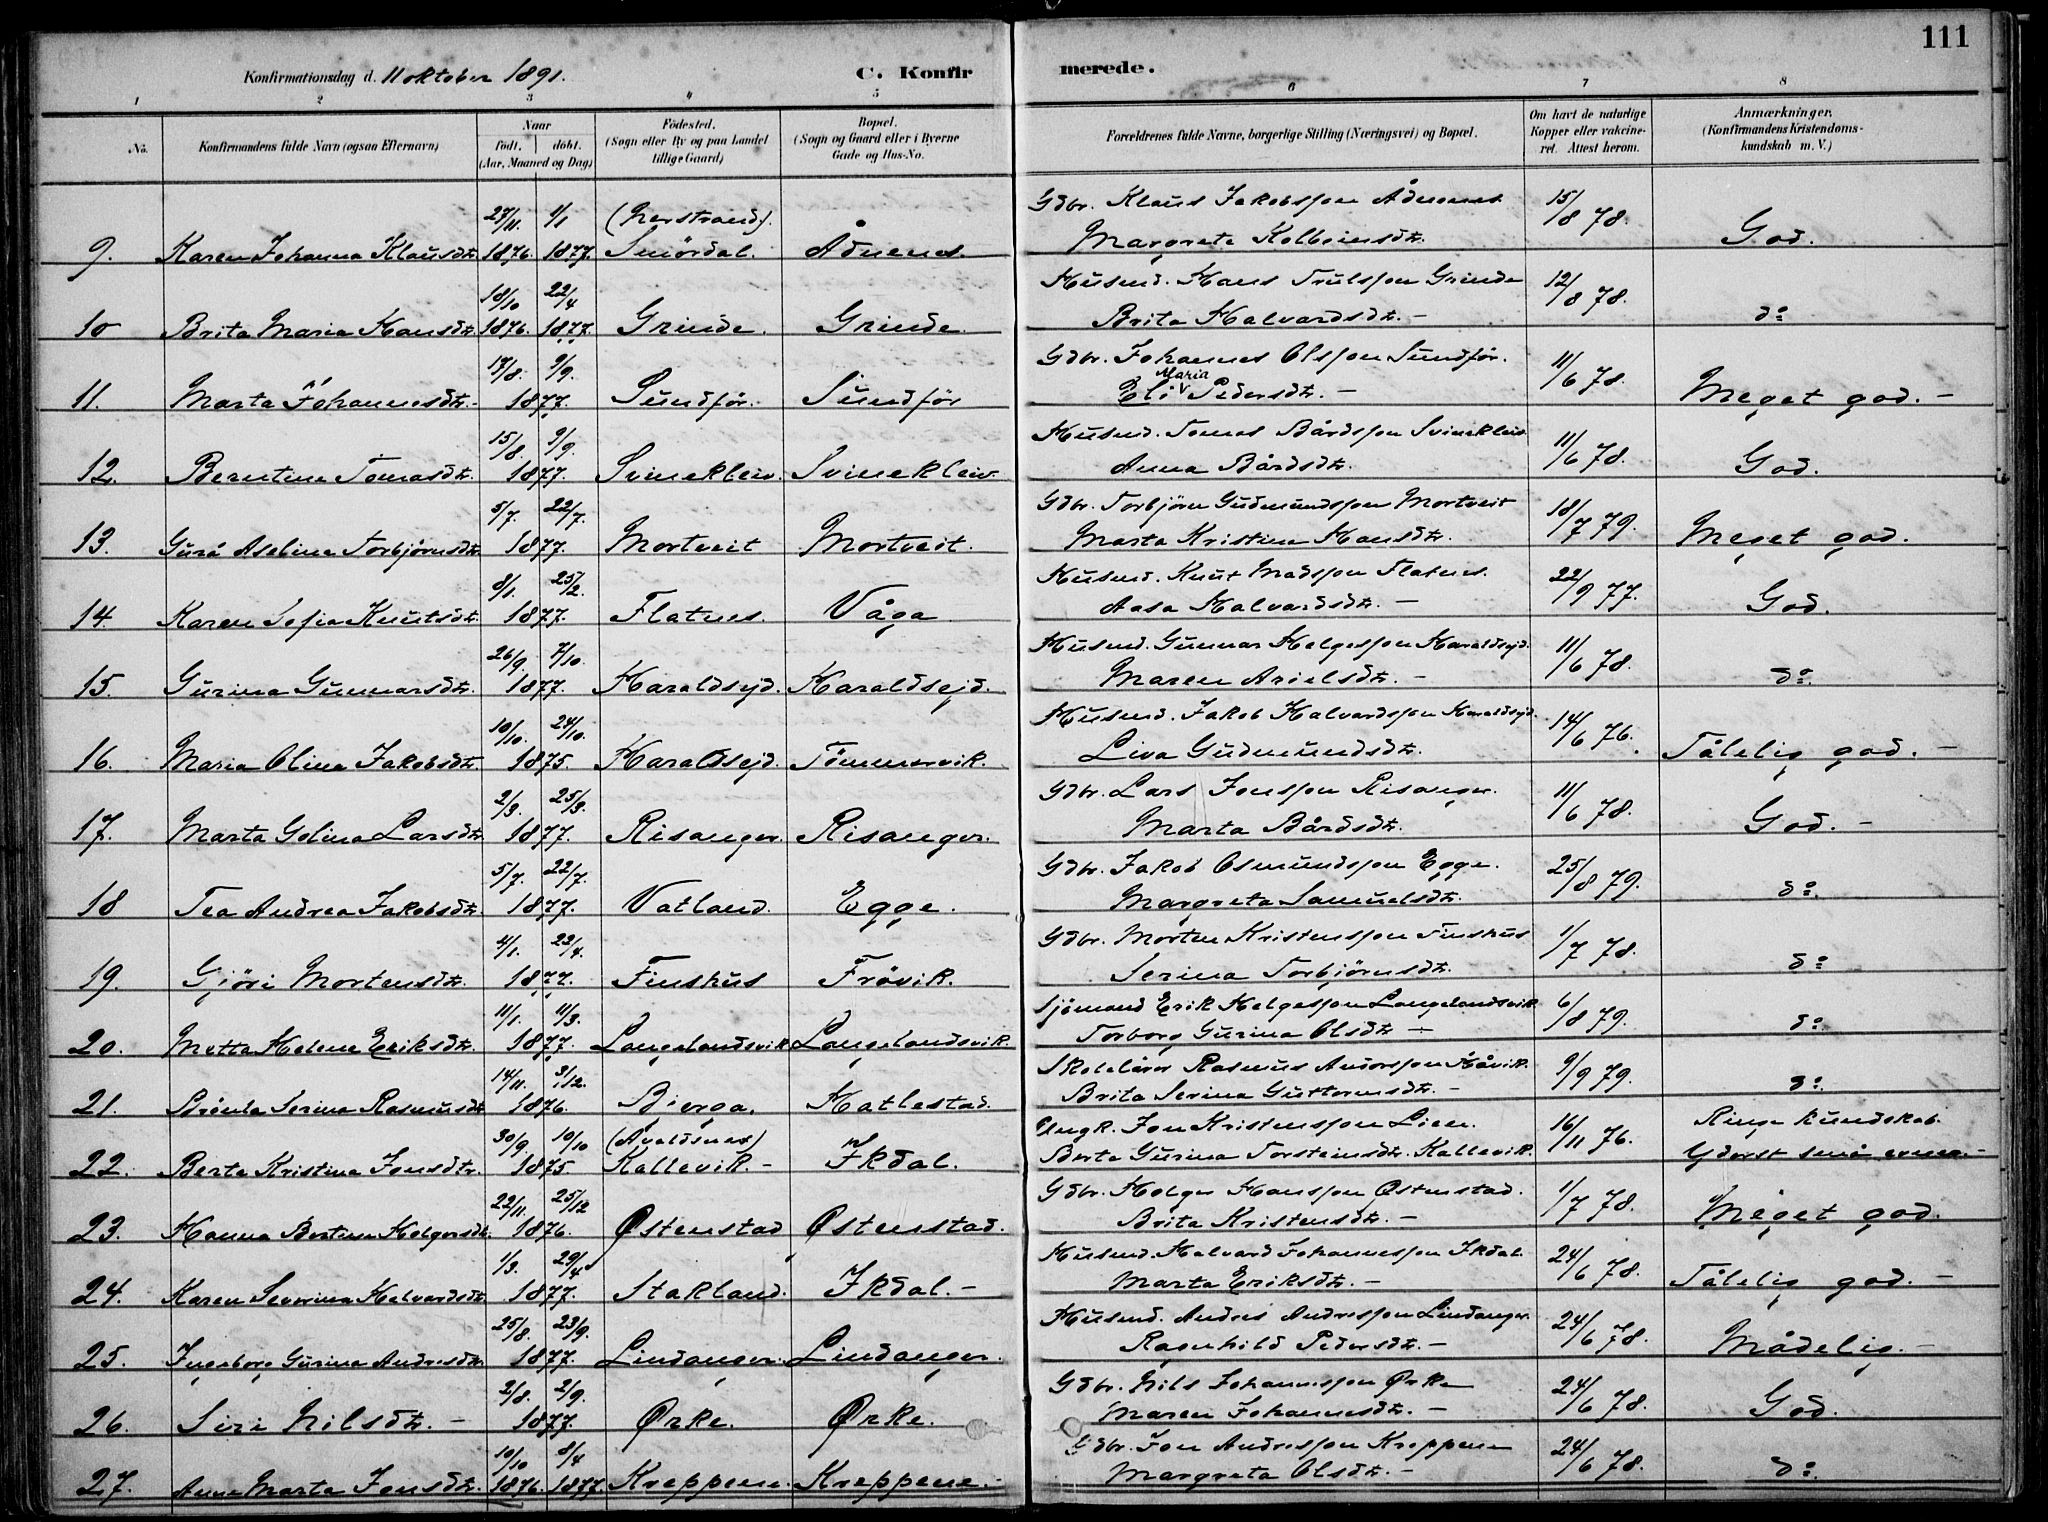 111
Konfirmationsdag d. 11 oktober 1891.
C. Konfirmerede.
1 2 3 4 5 6 7 8
No. Konfirmandens fulde Navn (ogsaa Efternavn) Naar født. døbt. (Aar, Maaned og Dag) Fødested. (Sogn eller By og paa Landet tillige Gaard) Bopæl. (Sogn og Gaard eller i Byerne Gade og Hus-No. Forældrenes fulde Navne, borgerlige Stilling (Næringsvei) og Bopæl. Om havt de naturlige Kopper eller vakcineret. Attest herom. Anmærkninger. (Konfirmandens Kristendomskundskab m. V.)
27/11. 1/1 (Nerstrand). Gdbr. Klaus Jakobsson Ådnenes 15/8 78.
9. Karen Johanna Klausdtr. 1876. 1877. Smördal. Ådnenes. Margreta Kolbeinsdtr. God.
18/10 22/4 Husmd. Hans Trulsson Grinde 12/8 78.
10 Brita Maria Hansdtr. 1876. 1877. Grinde. Grinde. Brita Halvardsdtr. - do
17/8. 9/9. Gdbr. Johannes Olsson Sundför. 11/6 78.
11. Marta Johannesdtr. 1877. Sundför. Sundför Eli Maria Pedersdtr. - Meget god. -
15/8. 9/9. Husmd. Tomas Bårdsson Svinekleiv 11/6 78.
12. Berntine Tomasdtr. 1877. Svinekleiv. Svinekleiv. Anna Bårdsdtr. God.
5/7. 22/7. Gdbr. Torbjörn Gudmundsson Mortveit 18/7 79.
13. Gurå Aseline Torbjörnsdtr. 1877. Mortveit Mortveit. Marta Kristine Hansdtr. Meget god.
8/1. 25/2. Husmd. Knut Madsson Flatnes. 22/9 77.
14. Karen Sofia Knutsdtr. 1877. Flatnes. Våga Aasa Halvardsdtr. - God.
26/9. 7/10. Husmd. Gunnar Helgesson Haraldseid. 11/6 78.
15. Gurina Gunnarsdtr. 1877. Haraldseid. Haraldseid. Maren Arielsdtr. - do.
10/10. 24/10. Husmd. Jakob Halvardsson Haraldseid. 14/6 76.
16. Maria Oline Jakobsdtr. 1875. Haraldseid. Tömmervik. Liva Gudmundsdtr. Tålelig god. -
2/3. 25/3. Gdbr. Lars Jonsson Risanger. 11/6 78.
17. Marta Golina Larsdtr. 1877. Risanger. Risanger. Marta Bårdsdtr. God. -
5/7. 22/7. Gdbr. Jakob Osmundsson Egge. 25/8 79.
18 Tea Andrea Jakobsdtr. 1877. Vatland. Egge. Margreta Samuelsdtr. do.
4/1. 22/4. Gdbr. Morten Kristensson Finshus 1/7 78.
19. Gjöri Mortensdtr. 1877. Finshus Frövik. Serina Torbjörnsdtr. do
11/1. 11/3. Sjömand Erik Helgesson Langelandsvik 6/8 79.
20. Metta Helene Eriksdtr. 1877. Langelandsvik Langelandsvik. Torborg Gurina Olsdtr. - do.
14/11. 3/12. Skolelärer Rasmus Andersson Håvik. 9/9 79.
21. Serina Rasmusdtr. 1876. Bjerga. Hatlestad. Brita Serina Guttormsdtr. - do.
30/9. 10/10 (Avaldsnes) Ungk. Jon Kristensson Lien. 16/11 76. Ringe kundskab.
22. Berta Kristina Jonsdtr. 1875 Kallevik. - Ikdal. Berta Gurina Torsteinsdtr. Kallevik. Yderst små evner. -
22/11. 25/12 Gdbr. Helge Hansson Østenstad. 1/7 78.
23. Hanna Bertine Helgesdtr. 1876. Østenstad Østenstad. Brita Kristensdtr. - Meget god.
1/3. 29/4 Husmd. Halvard Johannesson Ikdal. 24/6 78.
24. Karen Severina Halvardsdtr. 1877. Stakland. Ikdal. - Marta Eriksdtr. - Tålelig god. -
25/8. 23/9. Husmd. Andreas Andresson Lindanger. 24/6 78.
25. Ingeborg Gurine Andresdtr. 1877. Lindanger. Lindanger. Ragnhild Pedersdtr. - Mådelig. -
2/8. 2/9. Gdbr. Nils Johannesson Ørke 24/6 78.
26. Siri Nilsdtr. - 1877. Ørke. Ørke. Maren Johannesdtr. - God.
10/10 8/4 Gdbr. Jon Andresson Kreppene 24/6 78.
27. Anne Marta Jonsdtr. 1876. 1877. Kreppene. Kreppene. - Margreta Olsdtr. - do.